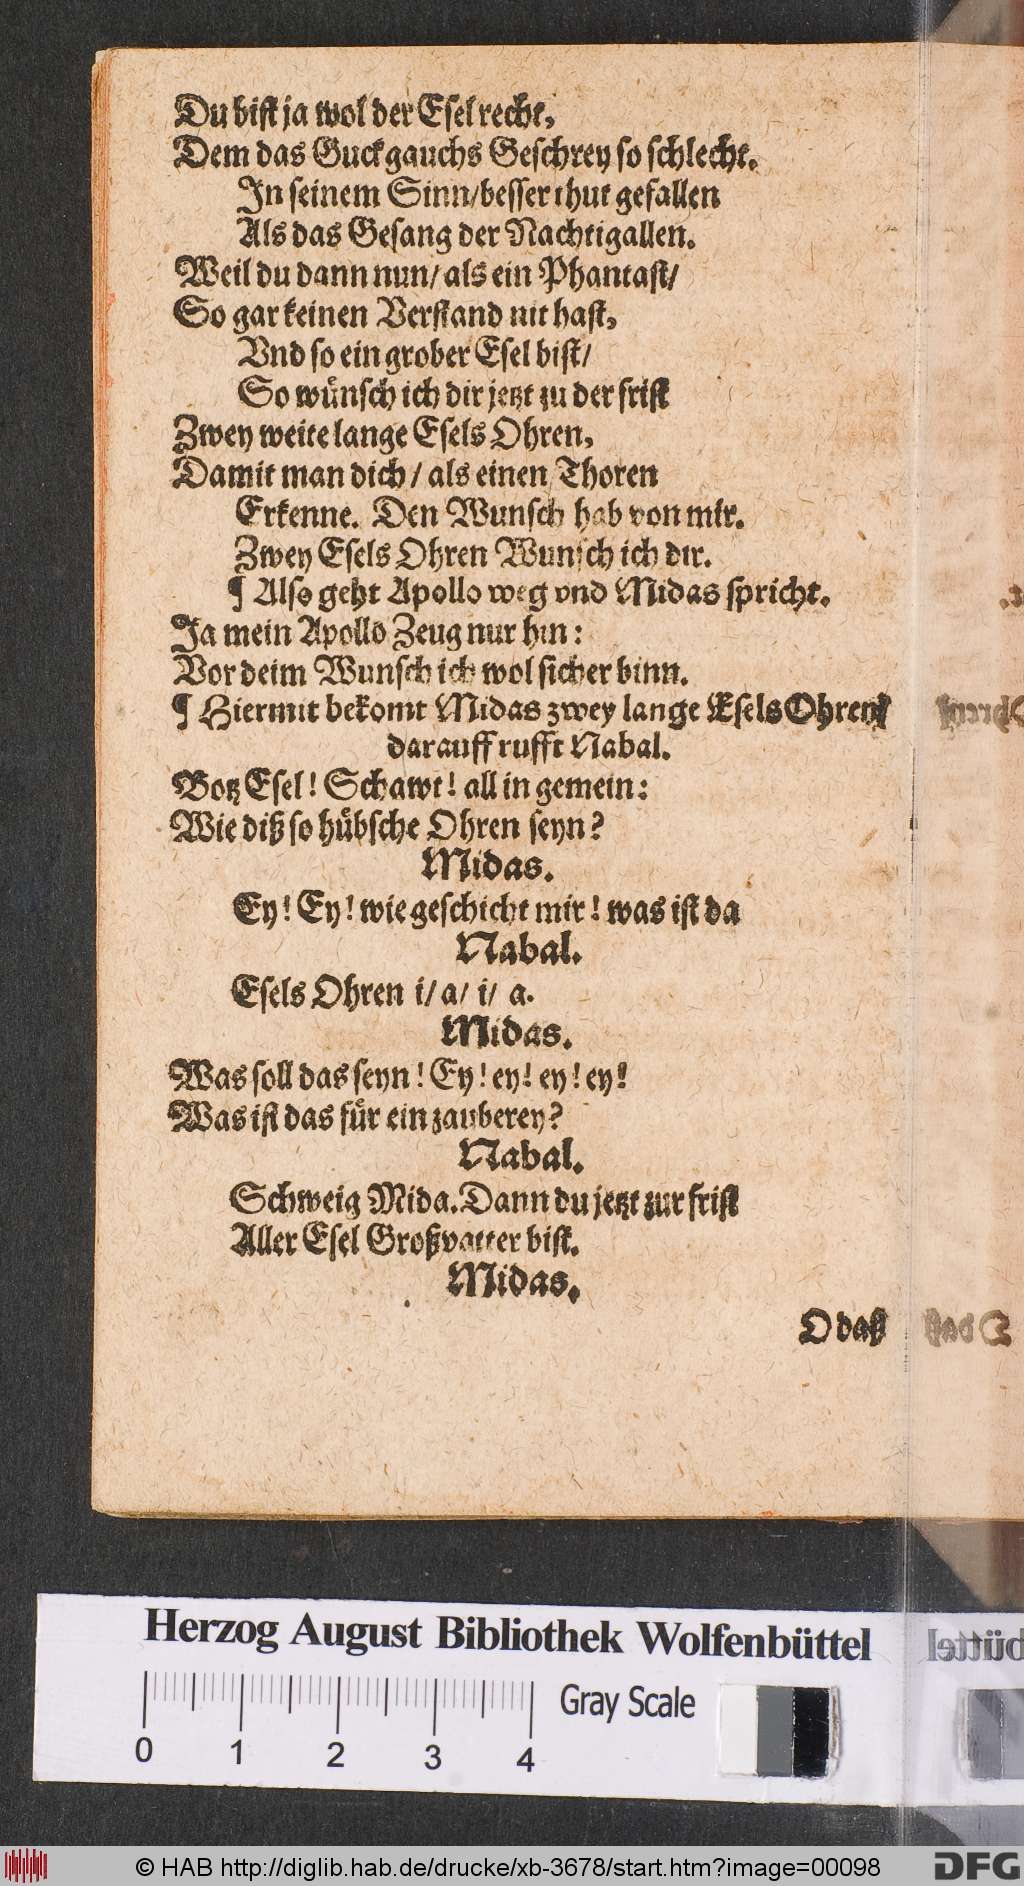 Du biſt ja wol der Eſel recht,
Dem das Guckgauchs Geſchrey ſo ſchlecht.
In ſeinem Sinn/beſſer thut gefallen
Als das Geſang der Nachtigallen.
Weil du dann nun/ als ein Phantaſt/
So gar keinen Verſtand nit haſt,
Vnd ſo ein grober Eſel biſt/
So wuͤnſch ich dir jetzt zu der friſt
Zwey weite lange Eſels Ohren,
Damit man dich/ als einen Thoren
Erkenne. Den Wunſch hab von mir.
Zwey Eſels Ohren Wunſch ich dir.
¶ Alſo geht Apollo weg vnd Midas ſpricht.
Ja mein Apollo Zeug nur hin:
Vor deim Wunſch ich wol ſicher binn.
¶ Hiermit bekomt Midas zwey lange Eſels Ohren/
darauff rufft Nabal.
Botz Eſel! Schawt! all in gemein:
Wie diß ſo huͤbſche Ohren ſeyn?
Midas.
Ey! Ey! wie geſchicht mir! was iſt da
Nabal.
Eſels Ohren i/ a/ i/ a.
Midas.
Was ſoll das ſeyn! Ey! ey! ey! ey!
Was iſt das fuͤr ein zauberey?
Nabal.
Schweig Mida. Dann du jetzt zur friſt
Aller Eſel Großvatter biſt.
Midas.
O daß
Herzog August Bibliothek Wolfenbüttel
Gray Scale
0 1 2 3 4
© HAB http://diglib.hab.de/drucke/xb-3678/start.htm?image=00098
DFG